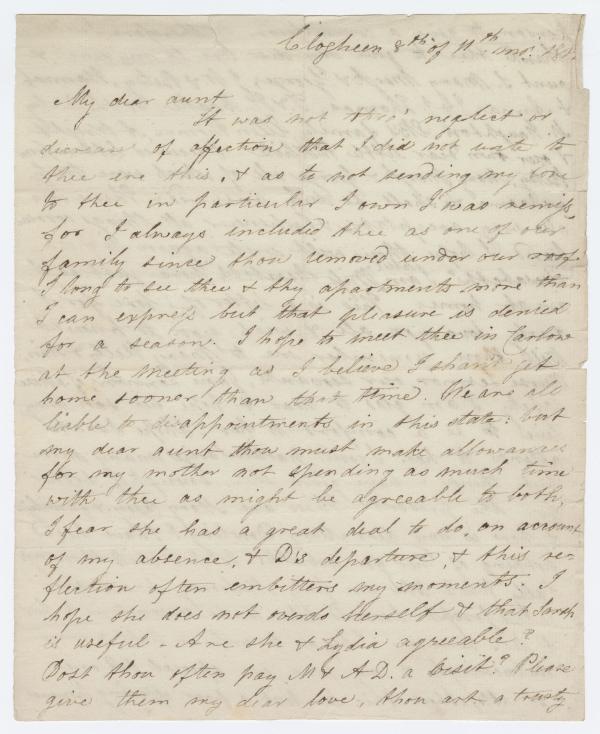 Clogheen 8th of 11th mo. 181
My dear aunt
It was not thro' neglect or
decrease of affection that I did not write to
thee ere this, & as to not sending my love
to thee in particular I own I was remiss,
for I always included thee as one of our
family since thou removed under our roof
I long to see thee & thy apartments more than
I can express but that pleasure is denied
for a season. I hope to meet thee in Carlow
at the meeting as I believe I shan't get
home sooner than that time. We are all
liable to disappointments in this state: but
my dear aunt thou must make allowances
for my mother not spending as much time
with thee as might be agreeable to both,
I fear she has a great deal to do, on account
of my absence, & D's departure, & this re=
flection often embitters my moments: I
hope she does not overdo herself & that Sarah
is useful - Are she & Lydia agreeable?
Dost thou often pay M & A D. a visit? Please
give them my dear love, thou art a trusty